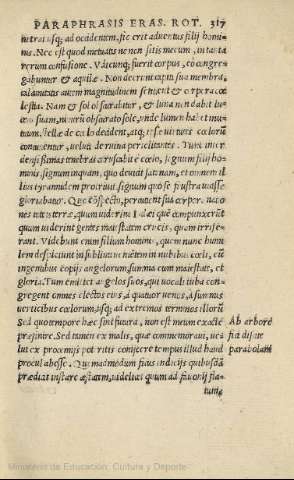 PARAPHRASIS ERAS. ROT. 317
in tractusq; ad occidentem, sic erit aduentus filij homi-
nis. Nec est quod metuatis ne non sitis mecum, in tanta
rerum confusione. Vbicunq; fuerit corpus, eò congre-
gabuntur & aquilae. Non decrunt capiti sua membra.
calamitatis autem magnitudinem sentient & corpora coe
lestia. Nam & sol obscurabitur, & luna non dabit lu-
cem suam, nimirum obscurato sole, unde lumen habet mu-
tuum. stellae de coelo decident, atq; ipsae uirtutes coelorū
commouentur, uelut de ruina periclitantes. Tunc inter
densissimas tenebras coruscabit è coelo, signum filij ho-
minis, signum inquam, quo deuicit satanam, et omnem il
lius tyrannidem protriuit. signum quo se frustra uasse
gloriabatur. Quo conspecto,
nes tribus terrae, quum uiderint Iudaei que compunxerūt
quum uiderint gentes maiestatem crucis, quam irrise-
rant. Videbunt enim filium hominis, quem nunc humi
lem despiciunt in sublimi uenientem in nubibus coeli, cū
ingentibus copijs angelorum, summa cum maiestate, et
gloria. Tum emittet angelos suos, qui uocali tuba con-
gregent omnes electos eius, à quatuor uentis, à summis
uerticibus coelorum, usq; ad extremos terminos illorū
Sed quo tempore haec sint futura, non est meum exactè
praefinire. Sed tamen ex malis, quae commemoraui, ue
lut ex proximis poteritis conijcere tempus illud haud
procul abesse. Quemadmodum ficus indicijs quibusdā
praedicit instare aestatem, uidelicet quum ad fauonij fla-
tum,
Ab arbore
fici discite
parabolam
Ministerio de Educación, Cultura y Deporte